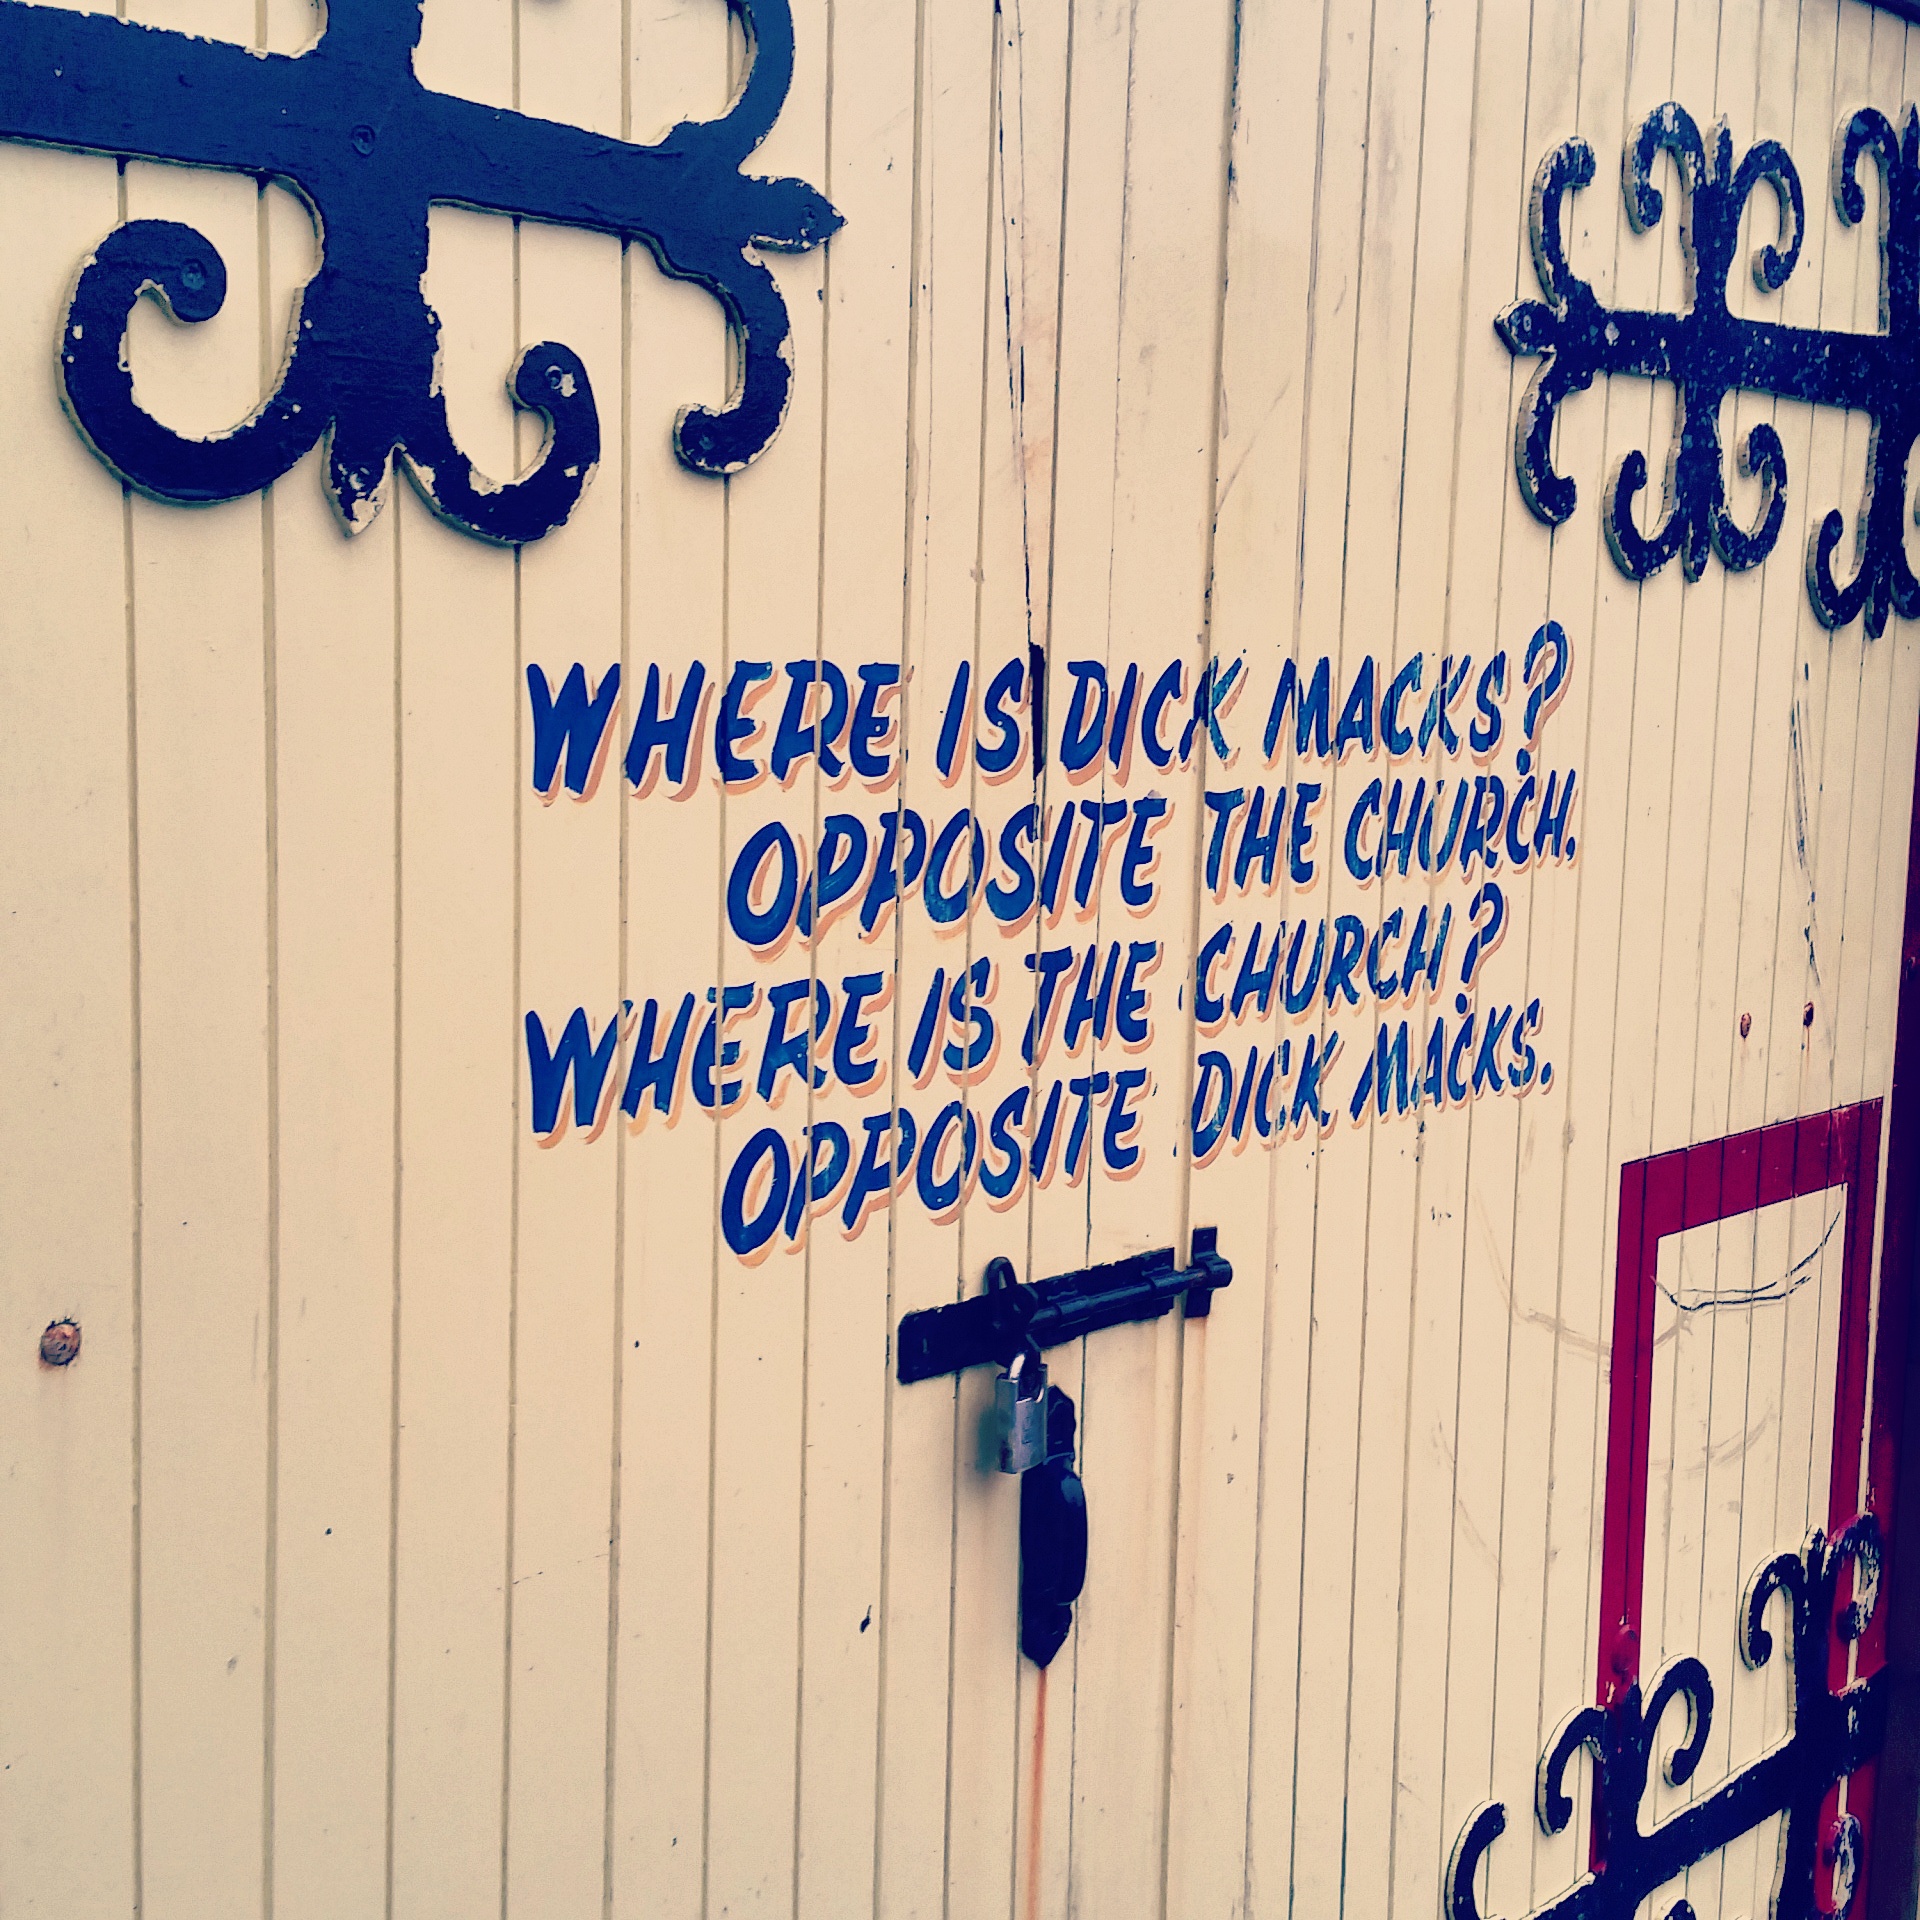 WHERE IS DICK MACKS?
OPPOSITE THE CHURCH.
WHERE IS THE CHURCH?
OPPOSITE DICK MACKS.